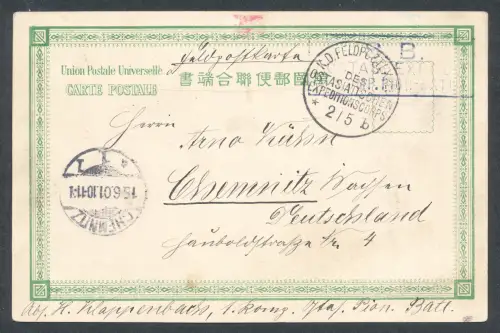 Feldpostkarte
Union Postale Universelle.
CARTE POSTALE
K.D. FELDPOSTEXP.
DES
OSTASIATISCHEN
EXPEDITIONSCORPS
* 2/5 b
B.
Herrn
Arno Kühn
Chemnitz Sachsen
Deutschland
Hauboldstraße Nr. 4
15.6.01.10-11
CHEMNITZ
Abs. H. Klappenbach, 1. Komp. Ostas. Pion. Batl.